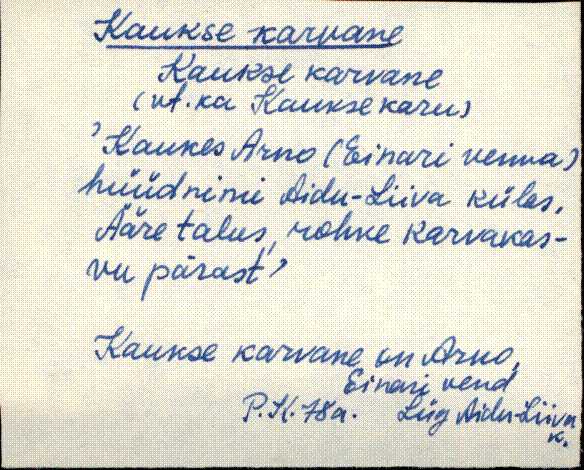 Kaukse karvane
Kaukse karvane
(vt. ka Kaukse karu)
'Kaukes Arno (Einari venna)
hüüdnimi Aidu-Liiva külas,
Ääre talus, rohke karvakas-
vu pärast'
Kaukse karvane on Arno,
Einari vend
P.K. 78a. Lüg Aidu-Liiva
k.